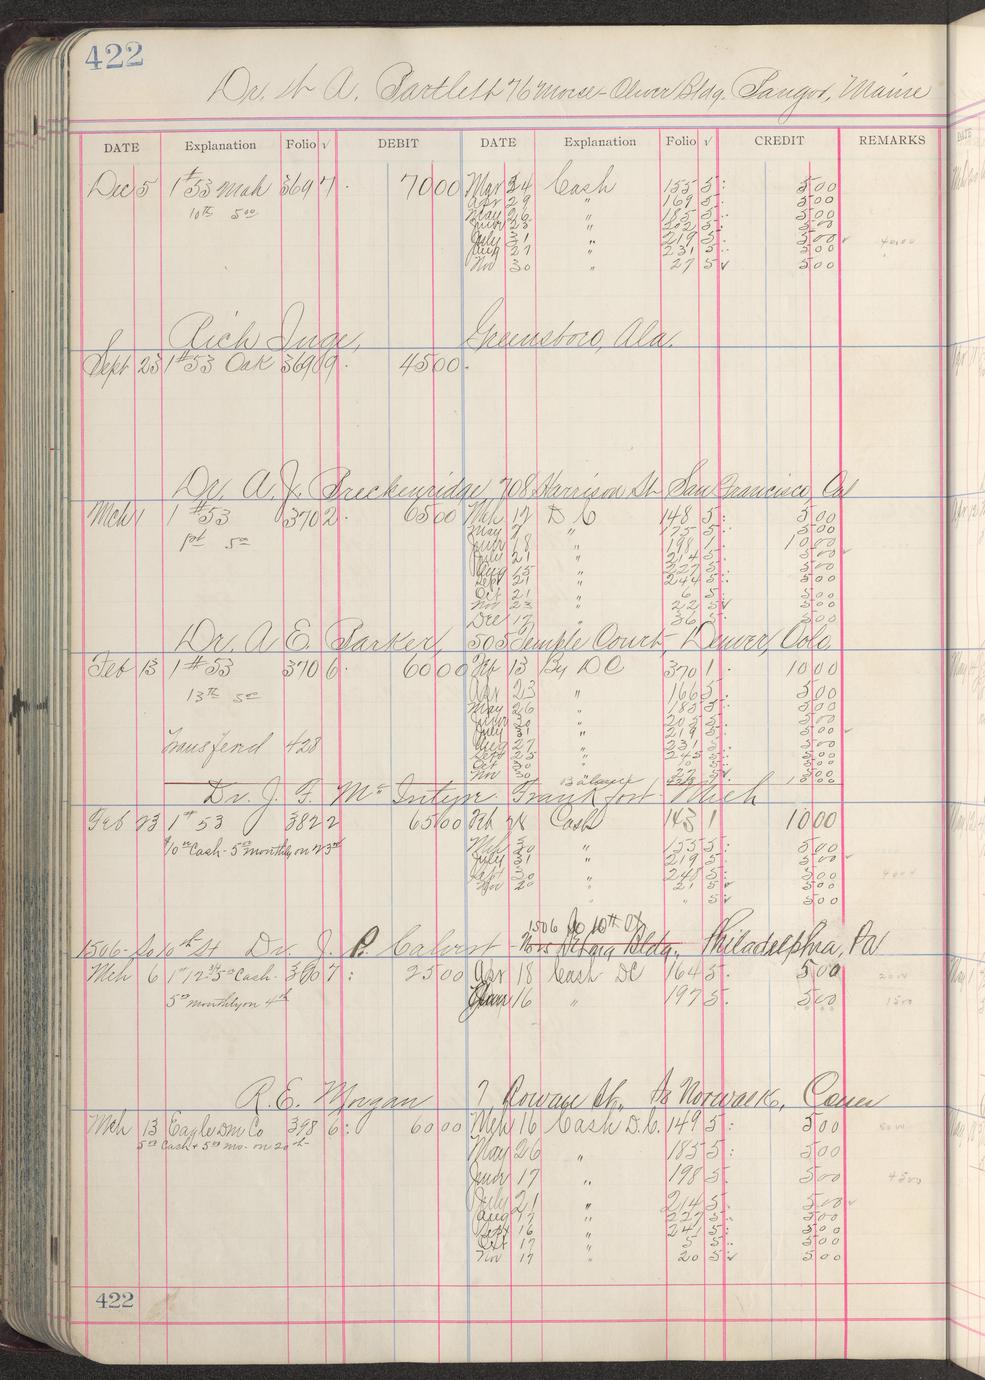 422
Dr. H A. Bartlett 76 Morse-Oliver Bldg. Bangor, Maine
DATE Explanation Folio √ DEBIT DATE Explanation Folio √ CREDIT REMARKS
Dec 5 1 #53 Mah 369 7 70 00 Mar 24 Cash 155 5 5 00
10th 5 00 Apr 29 " 169 5 5 00
May 26 " 185 5 5 00
June 23 " 202 5 5 00
July 31 " 219 5 5 00 √ 40.00
Aug 27 " 231 5 5 00
Nov 30 " 27 5 √ 5 00
Rich Inge, Greensboro, Ala.
Sept 23 1 #53 Oak 369 9 45 00
Dr. A. J. Breckenridge, 708 Harrison St San Francisco, Cal
Mch 1 1 #53 370 2 65 00 Mch 12 D C 148 5 5 00
1st 5 00 May 7 " 175 5 5 00
June 18 " 198 1 10 00
July 21 " 214 5 5 00 √
Aug 15 " 227 5 5 00
Sept 21 " 244 5 5 00
Oct 21 " 6 5 5 00
Nov 23 " 22 5 √ 5 00
Dec 17 " 36 5 5 00
Dr. A E. Parker, 505 Temple Court, Denver, Colo.
Feb 13 1 #53 370 6 60 00 Feb 13 By D C 370 1 10 00
13th 5 00 Apr 23 " 166 5 5 00
May 26 " 185 5 5 00
June 30 " 205 5 5 00
July 31 " 219 5 5 00 √
Transferred 428 Aug 27 " 231 5 5 00
Sept 25 " 245 5 5 00
Oct 30 " 5 5 00
Nov 30 " 27 5 √ 5 00
Balance
Dr. J. F. McIntyre Frankfort Mich
Feb 23 1 #53 382 2 65 00 Feb 28 Cash 143 1 10 00
$10 00 Cash - 5 00 monthly on 23rd Mch 30 " 155 5 5 00
July 31 " 219 5 5 00 √
Sept 30 " 248 5 5 00
Nov 20 " 21 5 √ 5 00
" " 5 √ 5 00
1506 So 10th St
1506 - So 10th St Dr. J. P. Calvert Bldg., Philadelphia, Pa
Mch 6 Cash - 390 7 25 00 Apr 18 Cash DC 164 5 5 00
5 00 monthly on 4th June 16 " 197 5 5 00 15 00
R. E. Morgan 7 Rowan St., So Norwalk, Conn
Mch 13 Eagle Dm Co 398 6 60 00 Mch 16 Cash D.C. 149 5 5 00
5 00 Cash + 5 00 mo. on 20th May 26 " 185 5 5 00
June 17 " 198 5 5 00 45 00
July 21 " 214 5 5 00 √
Aug 17 " 227 5 5 00
Sept 16 " 241 5 5 00
Oct 17 " 5 5 5 00
Nov 17 " 20 5 √ 5 00
422